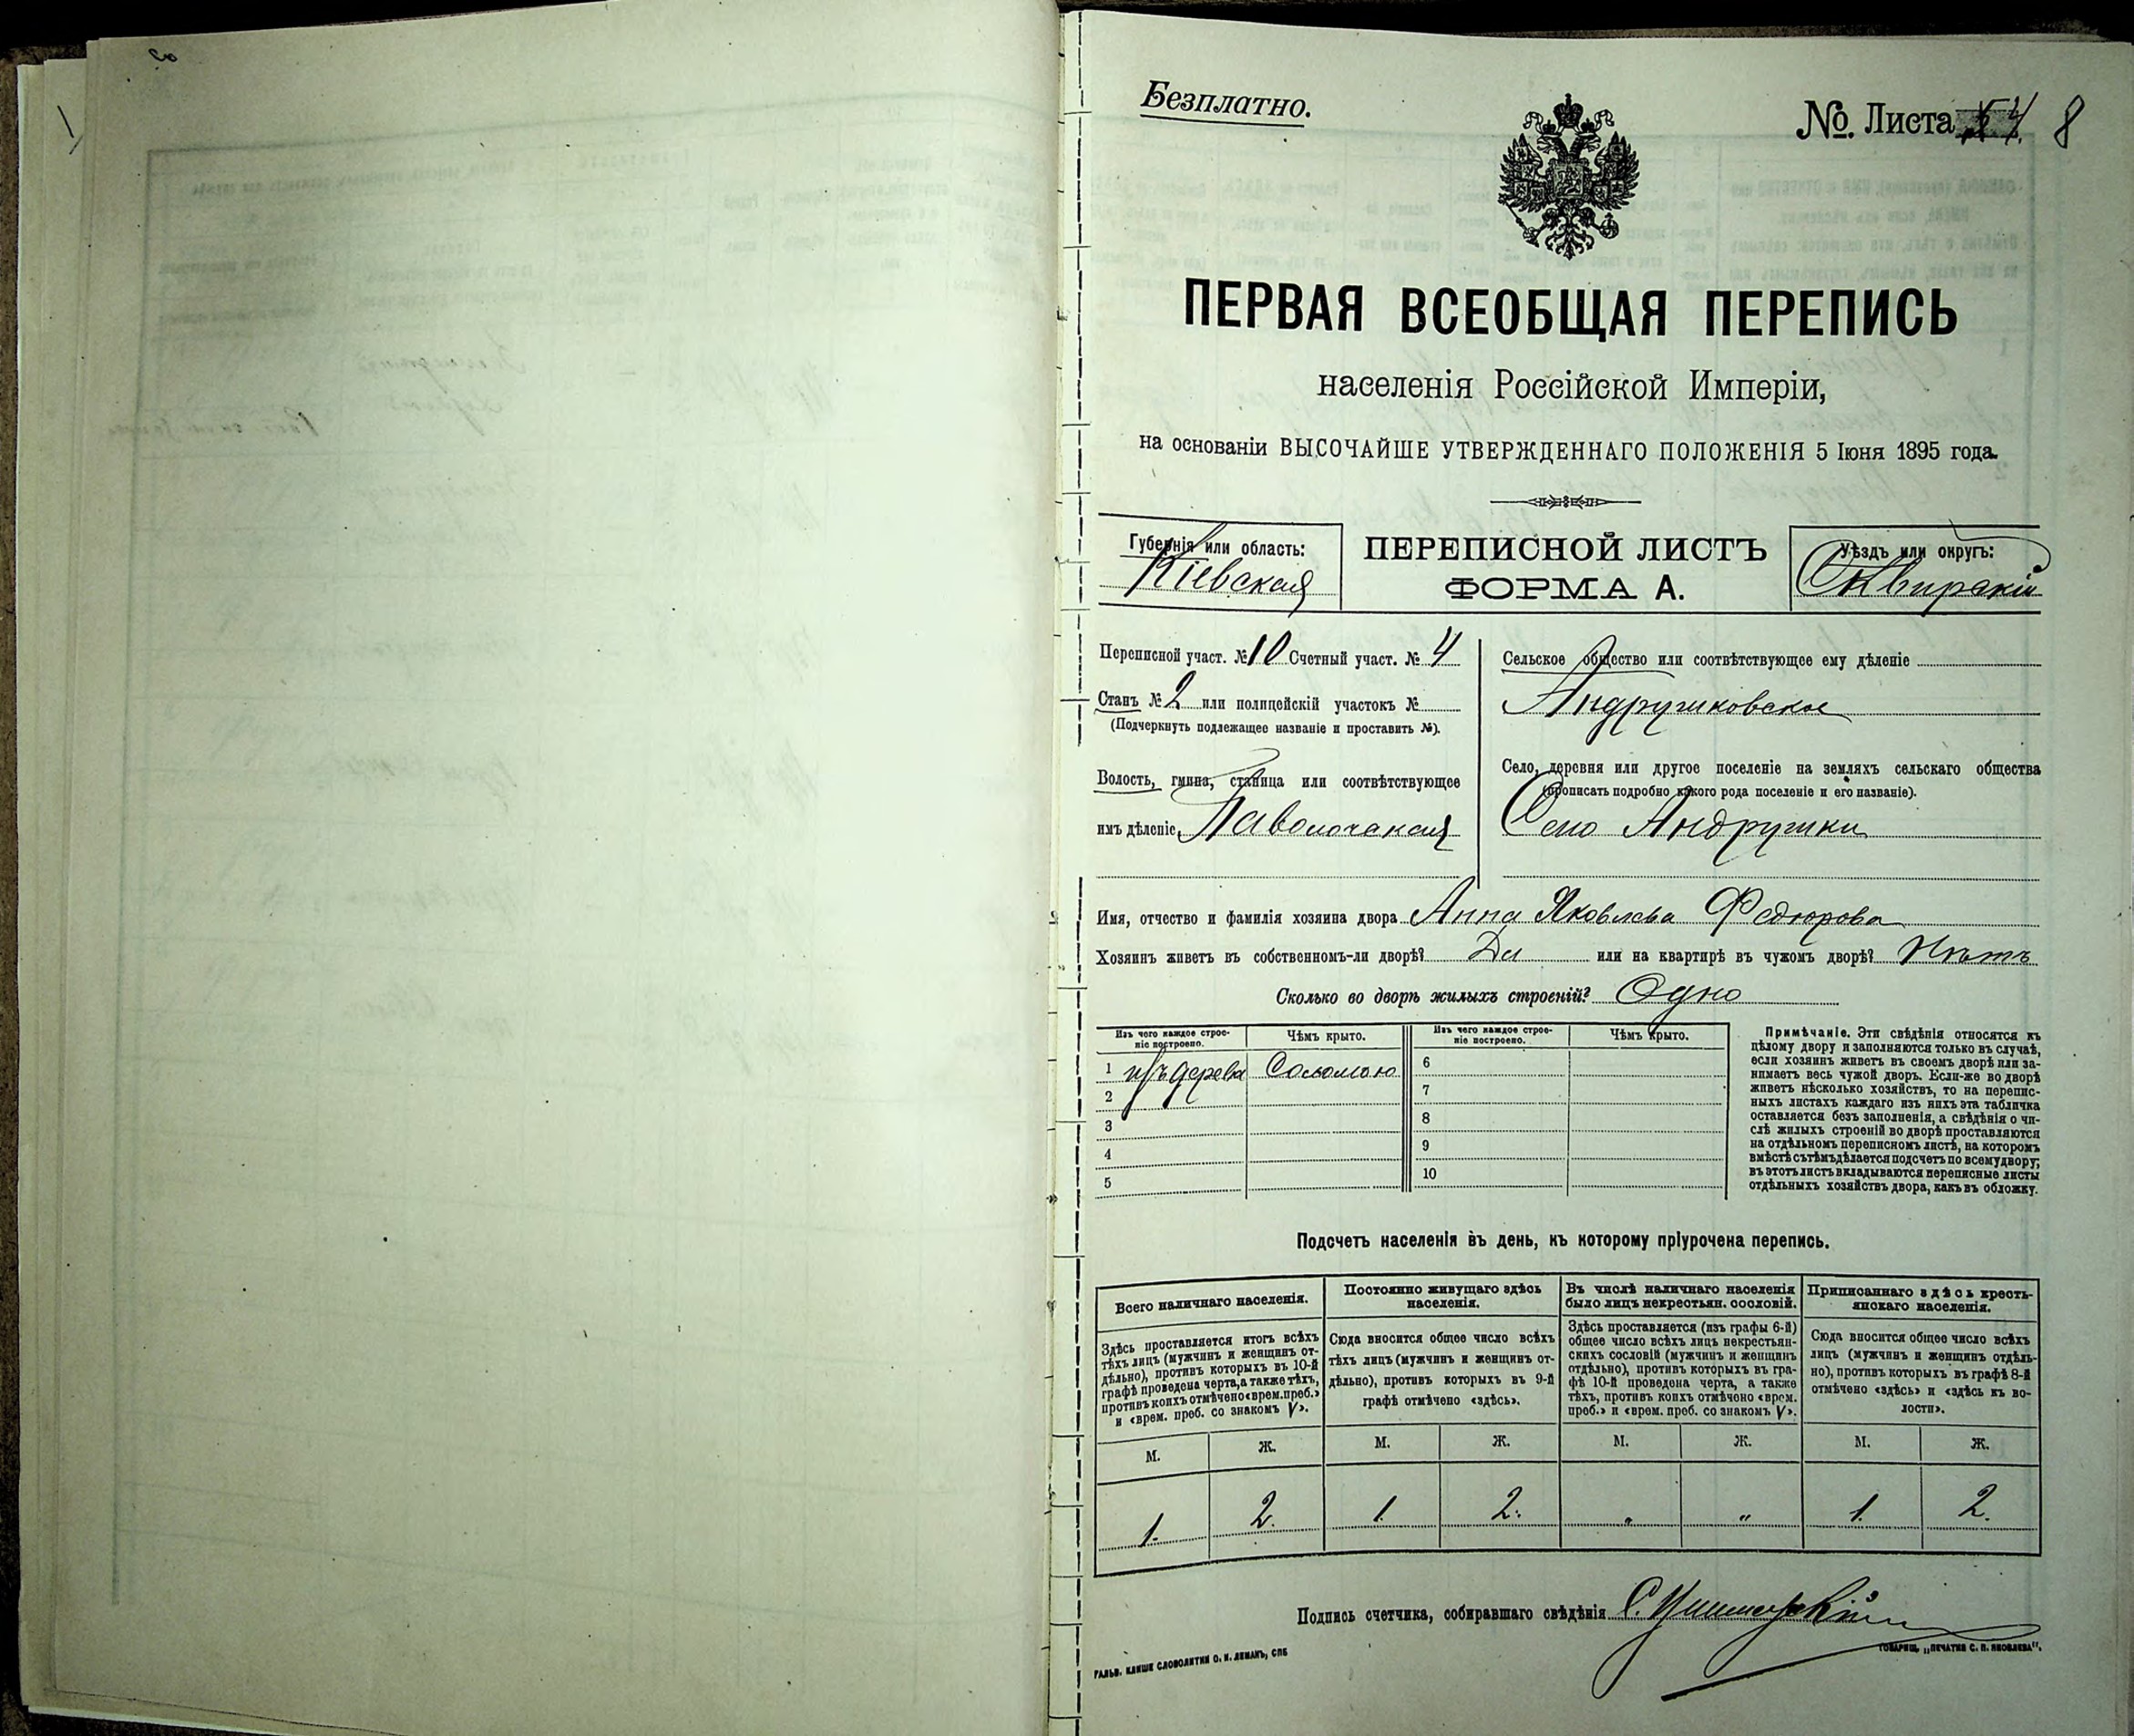 Безплатно.
№ Листа 8
ПЕРВАЯ ВСЕОБЩАЯ ПЕРЕПИСЬ
населенія Россійской Имперіи,
на основаніи ВЫСОЧАЙШЕ УТВЕРЖДЕННАГО ПОЛОЖЕНІЯ 5 Іюня 1895 года.
Губернія или область:
Кіевская
ПЕРЕПИСНОЙ ЛИСТЪ
ФОРМА А.
Уѣздъ или округъ:
Сквирскій
Переписной участ. № 10 Счетный участ. № 4
Станъ № 2 или полицейскій участокъ №
(Подчеркнуть подлежащее названіе и проставить №).
Волость, гмина, станица или соотвѣтствующее
имъ дѣленіе, Паволочская
Сельское общество или соотвѣтствующее ему дѣленіе
Андрушковское
Село, деревня или другое поселеніе на земляхъ сельскаго общества
(прописать подробно какого рода поселеніе и его названіе).
Село Андрушки
Имя, отчество и фамилія хозяина двора Анна Яковлева Федюрова
Хозяинъ живетъ въ собственномъ-ли дворѣ? Да или на квартирѣ въ чужомъ дворѣ? Нѣтъ
Сколько во дворѣ жилыхъ строеній? Одно
Изъ чего каждое строе-
ніе построено.
Чѣмъ крыто.
Изъ чего каждое строе-
ніе построено.
Чѣмъ крыто.
1 изъ дерева Соломою 6
2 7
3 8
4 9
5 10
Примѣчаніе. Эти свѣдѣнія относятся къ
цѣлому двору и заполняются только въ случаѣ,
если хозяинъ живетъ въ своемъ дворѣ или за-
нимаетъ весь чужой дворъ. Если-же во дворѣ
живетъ нѣсколько хозяйствъ, то на перепис-
ныхъ листахъ каждаго изъ нихъ эта табличка
оставляется безъ заполненія, а свѣдѣнія о чи-
слѣ жилыхъ строеній во дворѣ проставляются
на отдѣльномъ переписномъ листѣ, на которомъ
вмѣстѣ съ тѣмъ дѣлается подсчетъ по всему двору;
въ этотъ листъ вкладываются переписные листы
отдѣльныхъ хозяйствъ двора, какъ въ обложку.
Подсчетъ населенія въ день, къ которому пріурочена перепись.
Всего наличнаго населенія.
Здѣсь проставляется итогъ всѣхъ
тѣхъ лицъ (мужчинъ и женщинъ от-
дѣльно), противъ которыхъ въ 10-й
графѣ проведена черта, а также тѣхъ,
противъ коихъ отмѣчено «врем. преб.»
и «врем. преб. со знакомъ V».
Постоянно живущаго здѣсь
населенія.
Сюда вносится общее число всѣхъ
тѣхъ лицъ (мужчинъ и женщинъ от-
дѣльно), противъ которыхъ въ 9-й
графѣ отмѣчено «здѣсь».
Въ числѣ наличнаго населенія
было лицъ некрестьян. сословій.
Здѣсь проставляется (изъ графы 6-й)
общее число всѣхъ лицъ некрестьян-
скихъ сословій (мужчинъ и женщинъ
отдѣльно), противъ которыхъ въ гра-
фѣ 10-й проведена черта, а также
тѣхъ, противъ коихъ отмѣчено «врем.
преб.» и «врем. преб. со знакомъ V».
Приписаннаго здѣсь кресть-
янскаго населенія.
Сюда вносится общее число всѣхъ
лицъ (мужчинъ и женщинъ отдѣль-
но), противъ которыхъ въ графѣ 8-й
отмѣчено «здѣсь» и «здѣсь къ во-
лости».
М. Ж. М. Ж. М. Ж. М. Ж.
1. 2. 1. 2. " " 1. 2.
Подпись счетчика, собиравшаго свѣдѣнія С.
ГАЛЬВ. КЛИШЕ СЛОВОЛИТНИ О. И. ЛЕМАНЪ, СПБ
ТОВАРИЩ. „ПЕЧАТНЯ С. П. ЯКОВЛЕВА“.